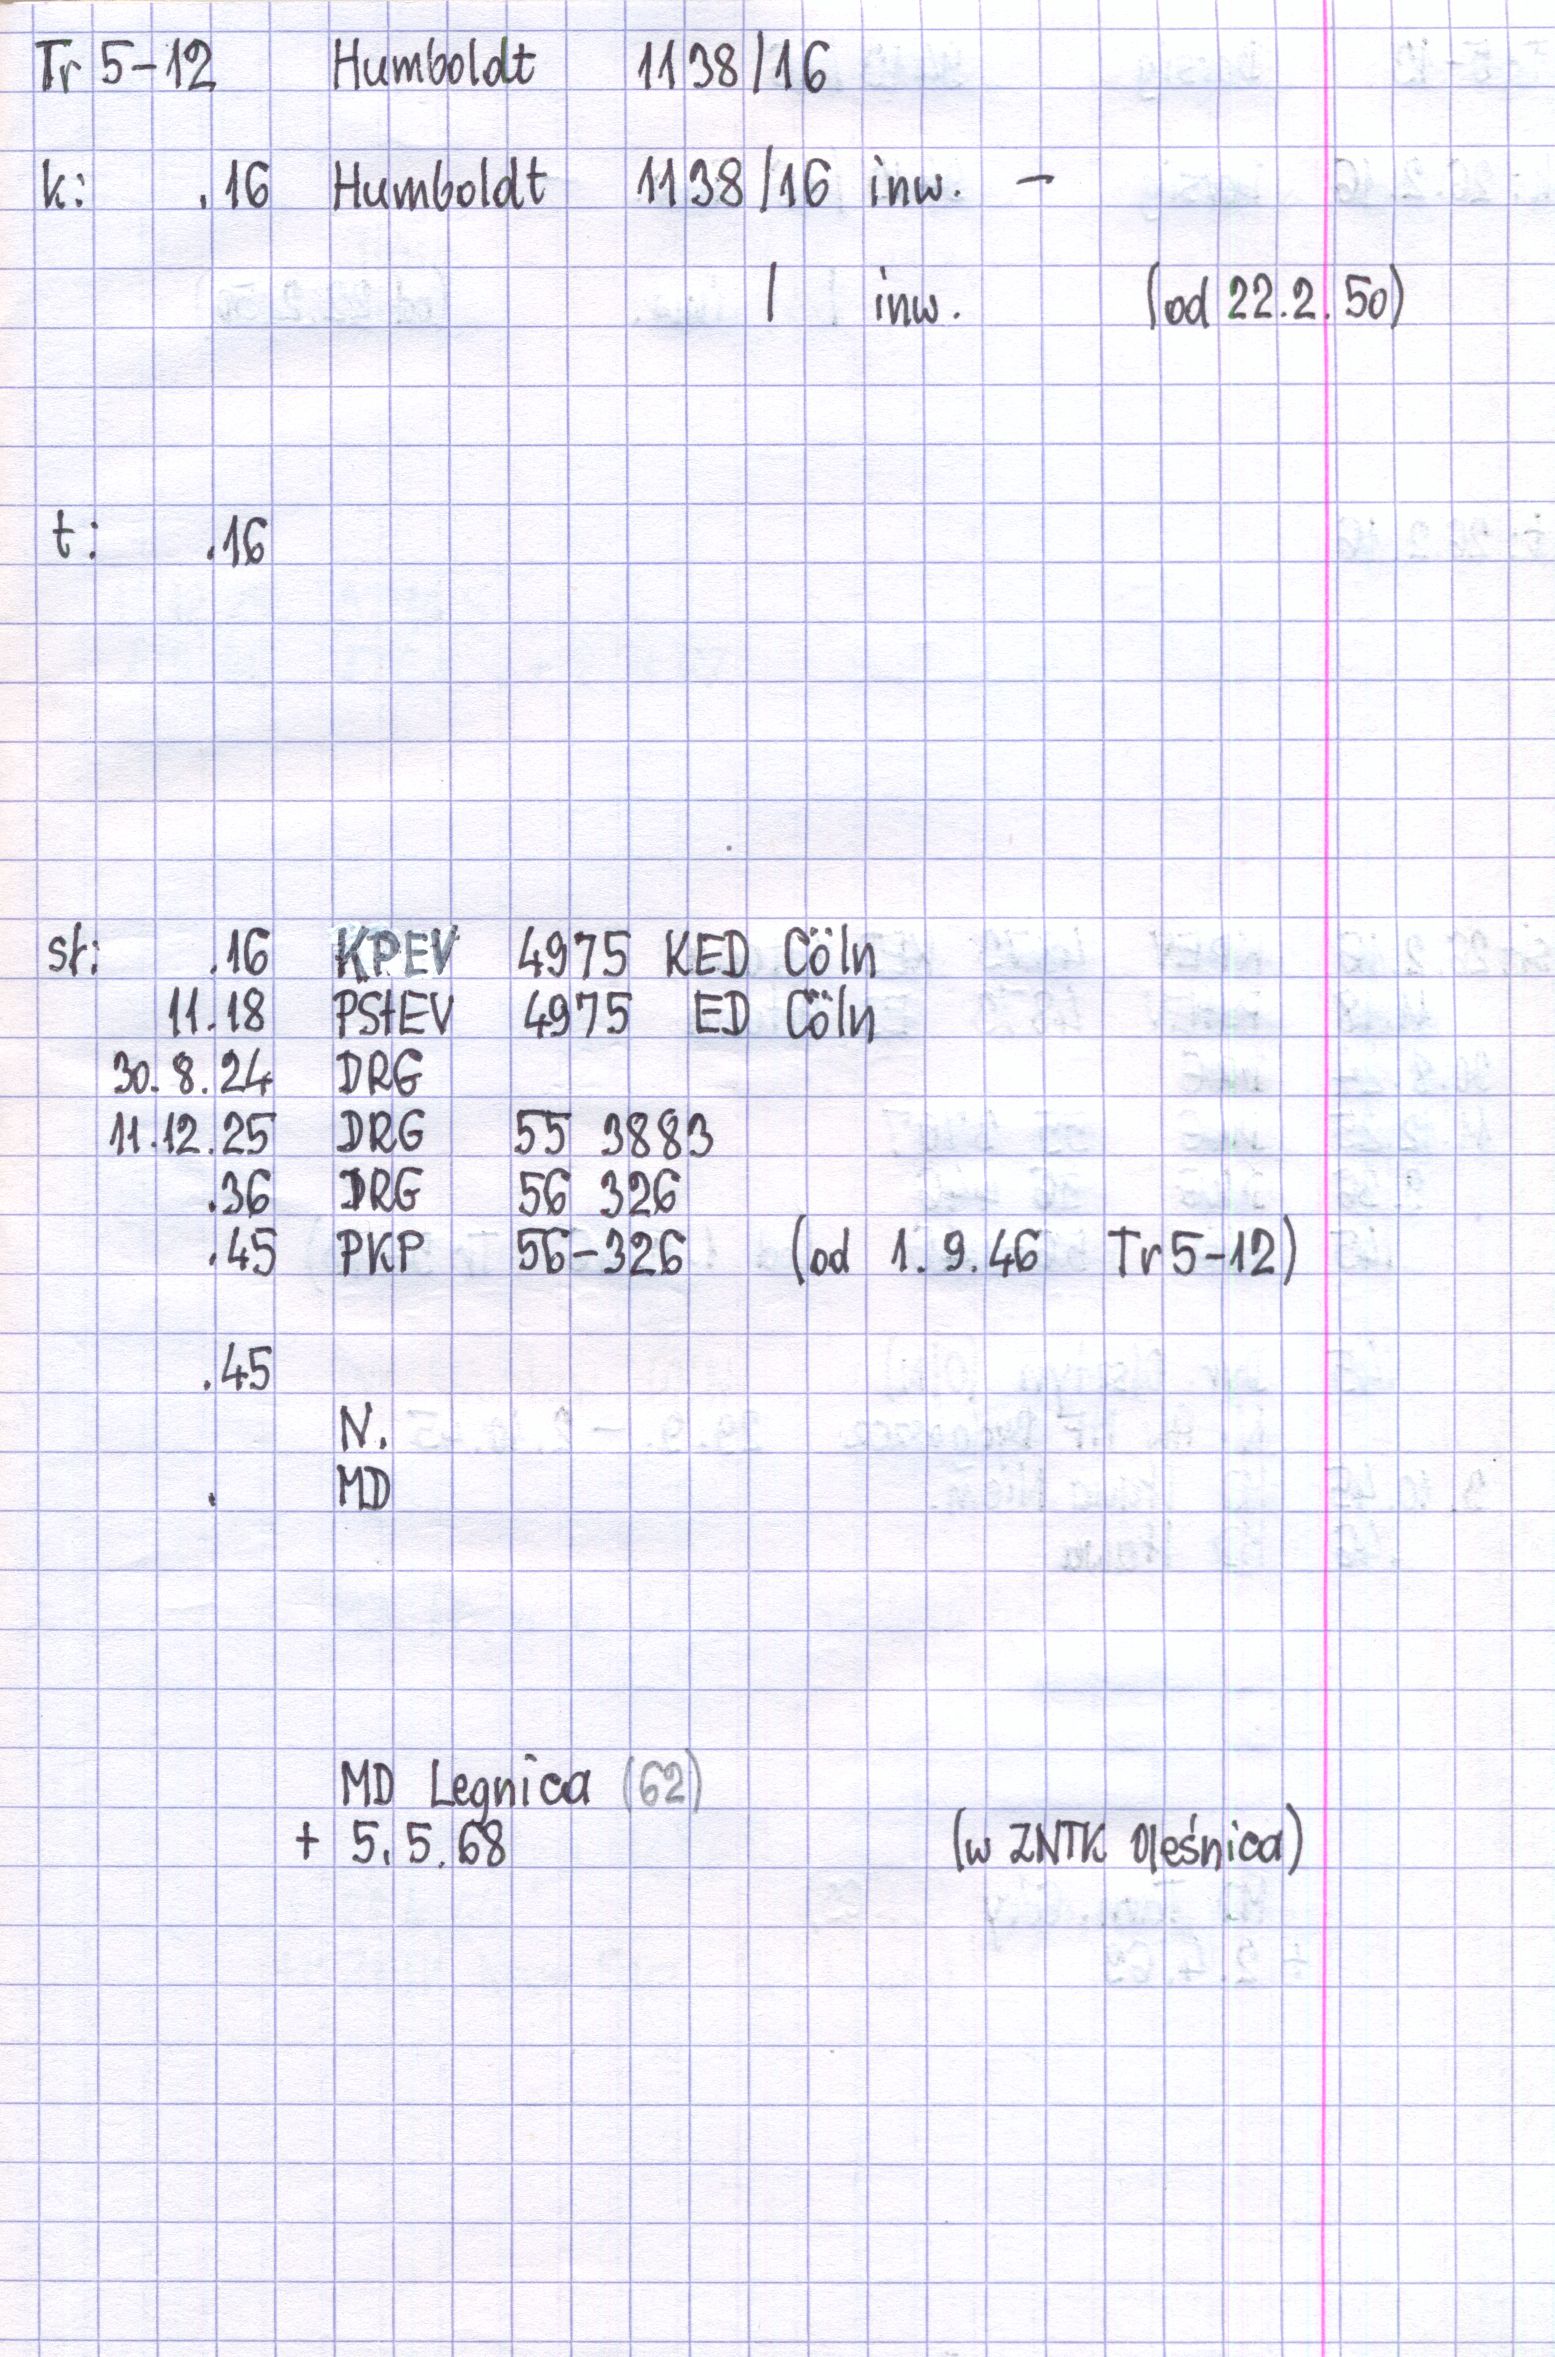 Tr 5-12 Humboldt 1138/16
k: .16 Humboldt 1138/16 inw. -
/ inw. (od 22.2.50)
t: .16
st: .16 KPEV 4975 KED Cöln
11.18 PStEV 4975 ED Cöln
30.8.24 DRG
11.12.25 DRG 55 3883
.36 DRG 56 326
.45 PKP 56-326 (od 1.9.46 Tr 5-12)
.45
N.
. MD
MD Legnica (62)
+ 5.5.68 (w ZNTK Oleśnica)